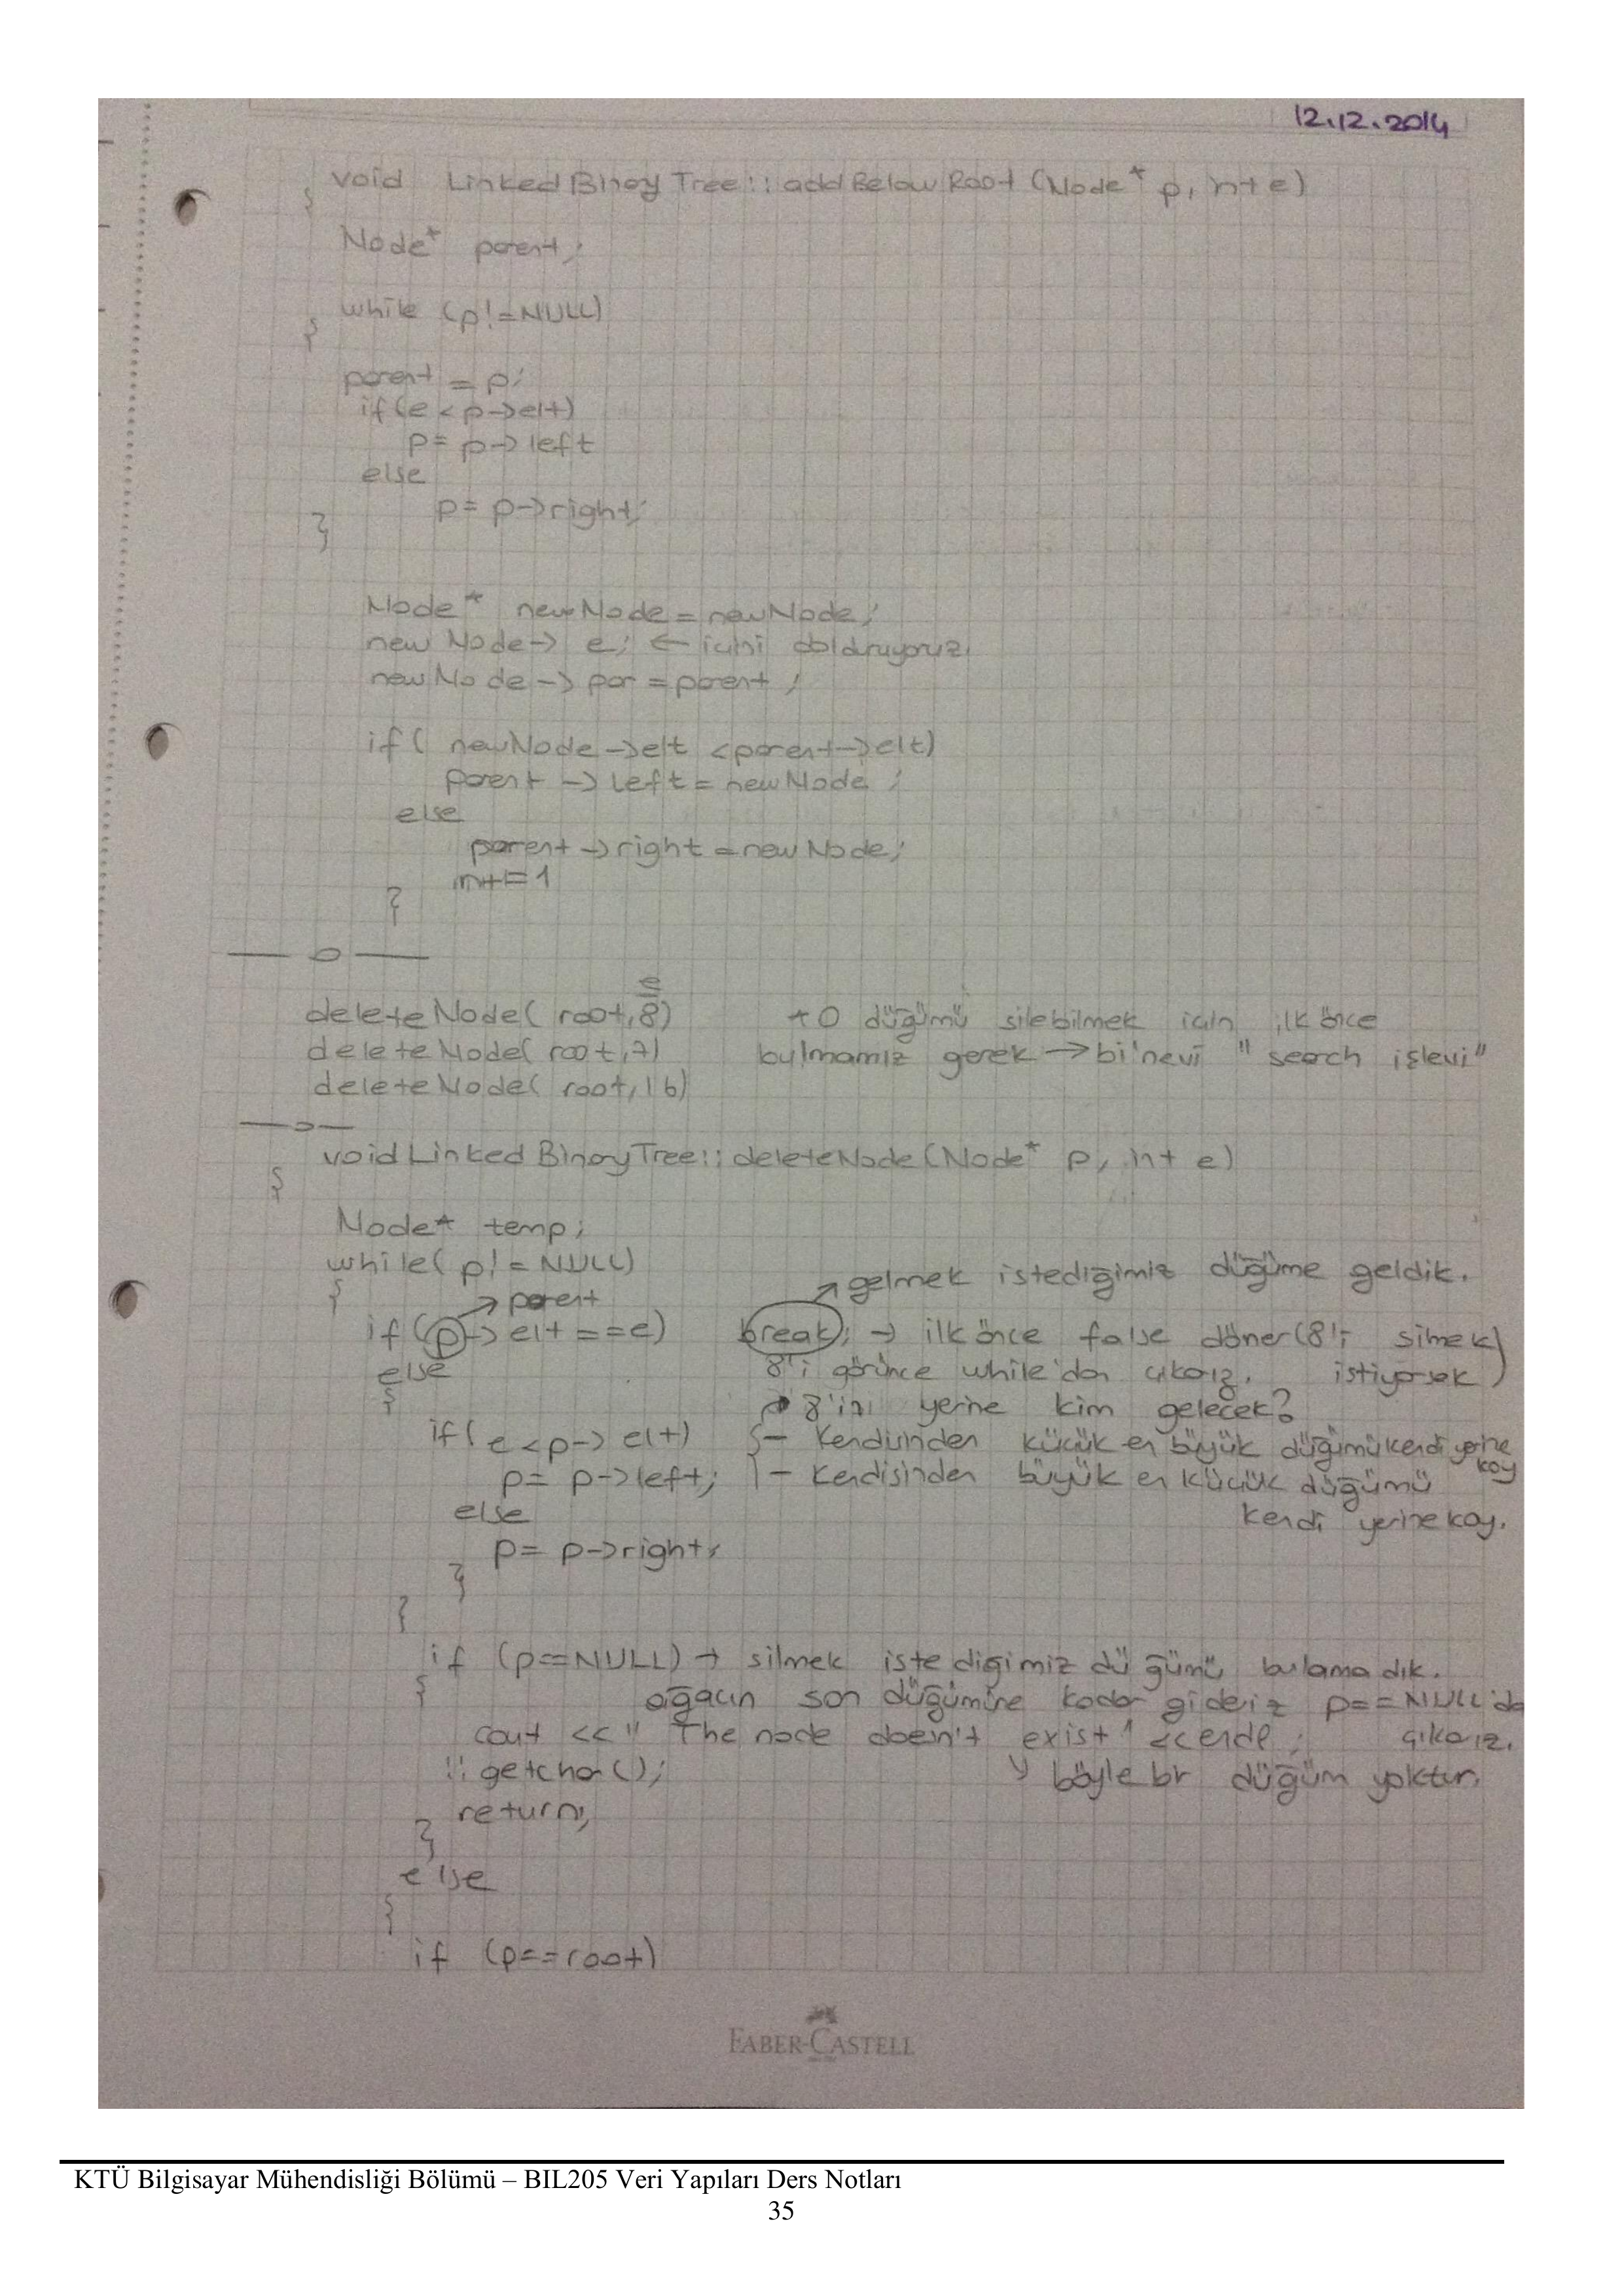 12.12.2014
void Linked Binary Tree :: add Below Root (Node* p, int e)
{
Node* parent;
while (p!=NULL)
{
parent = p;
if (e < p->elt)
p = p-> left
else
p = p->right;
}
Node* newNode = newNode;
new Node-> e; ← içini dolduruyoruz.
new Node -> par = parent ;
if ( newNode ->elt <parent->elt)
parent -> left = newNode ;
else
parent -> right = newNode;
n+=1
}
e
deleteNode( root, 8) * O düğümü silebilmek için ilk önce
deleteNode( root, 7) bulmamız gerek → bi'nevi " search işlevi"
deleteNode( root, 16)
void Linked BinaryTree :: deleteNode (Node* p, int e)
{
Node* temp;
while( p! = NULL)
{
→ parent ↗ gelmek istediğimiz düğüme geldik.
if (p-> elt ==e) break; → ilk önce false döner (8'i silmek
else 8'i görünce while'dan çıkarız. istiyorsak )
{ 8'in yerine kim gelecek?
if ( e <p-> elt) { - kendisinden küçük en büyük düğümü kendi yerine koy
p = p->left; - kendisinden büyük en küçük düğümü
else kendi yerine koy.
p = p->right;
}
}
if (p==NULL) → silmek istedigimiz düğümü bulamadık.
{ ağacın son düğümüne kadar gideriz p==NULL'da
cout << " The node doesn't exist " <<endl ; çıkarız.
:: getchar(); böyle bir düğüm yoktur.
return;
}
else
{
if (p==root)
FABER-CASTELL
KTÜ Bilgisayar Mühendisliği Bölümü – BIL205 Veri Yapıları Ders Notları
35